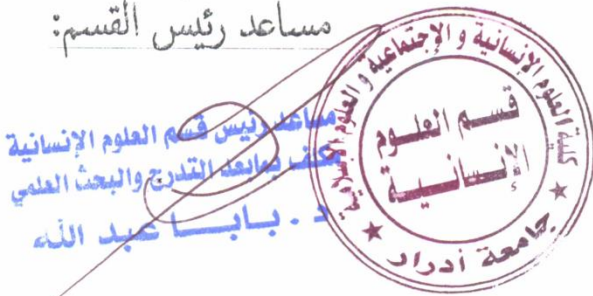 مساعد رئيس القسم:
مساعد رئيس قسم العلوم الإنسانية
مكلف بمابعد التدرج والبحث العلمي
د. بابا عبد الله
كلية العلوم الإنسانية و الإجتماعية و العلوم الإسلامية
قسم العلوم
الإنسانية
جامعة أدرار